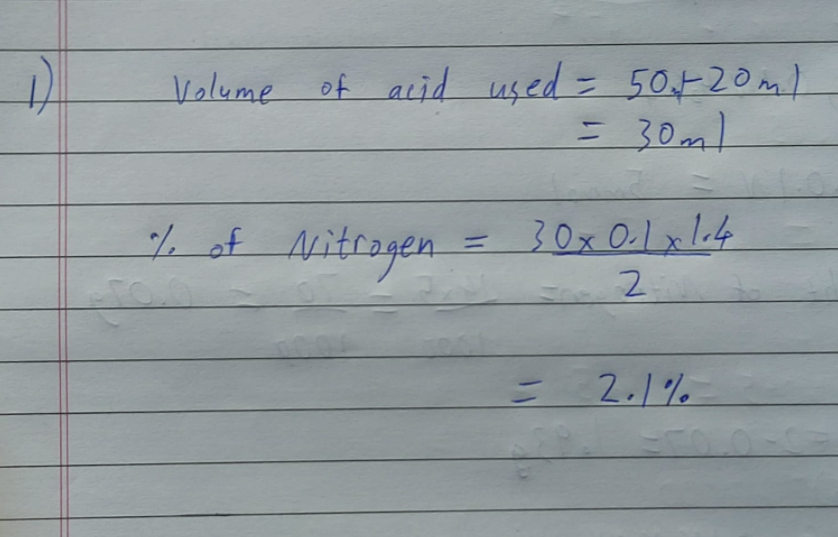 1) Volume of acid used = 50 - 20ml
= 30ml
% of Nitrogen = 30 x 0.1 x 1.4
2
= 2.1%